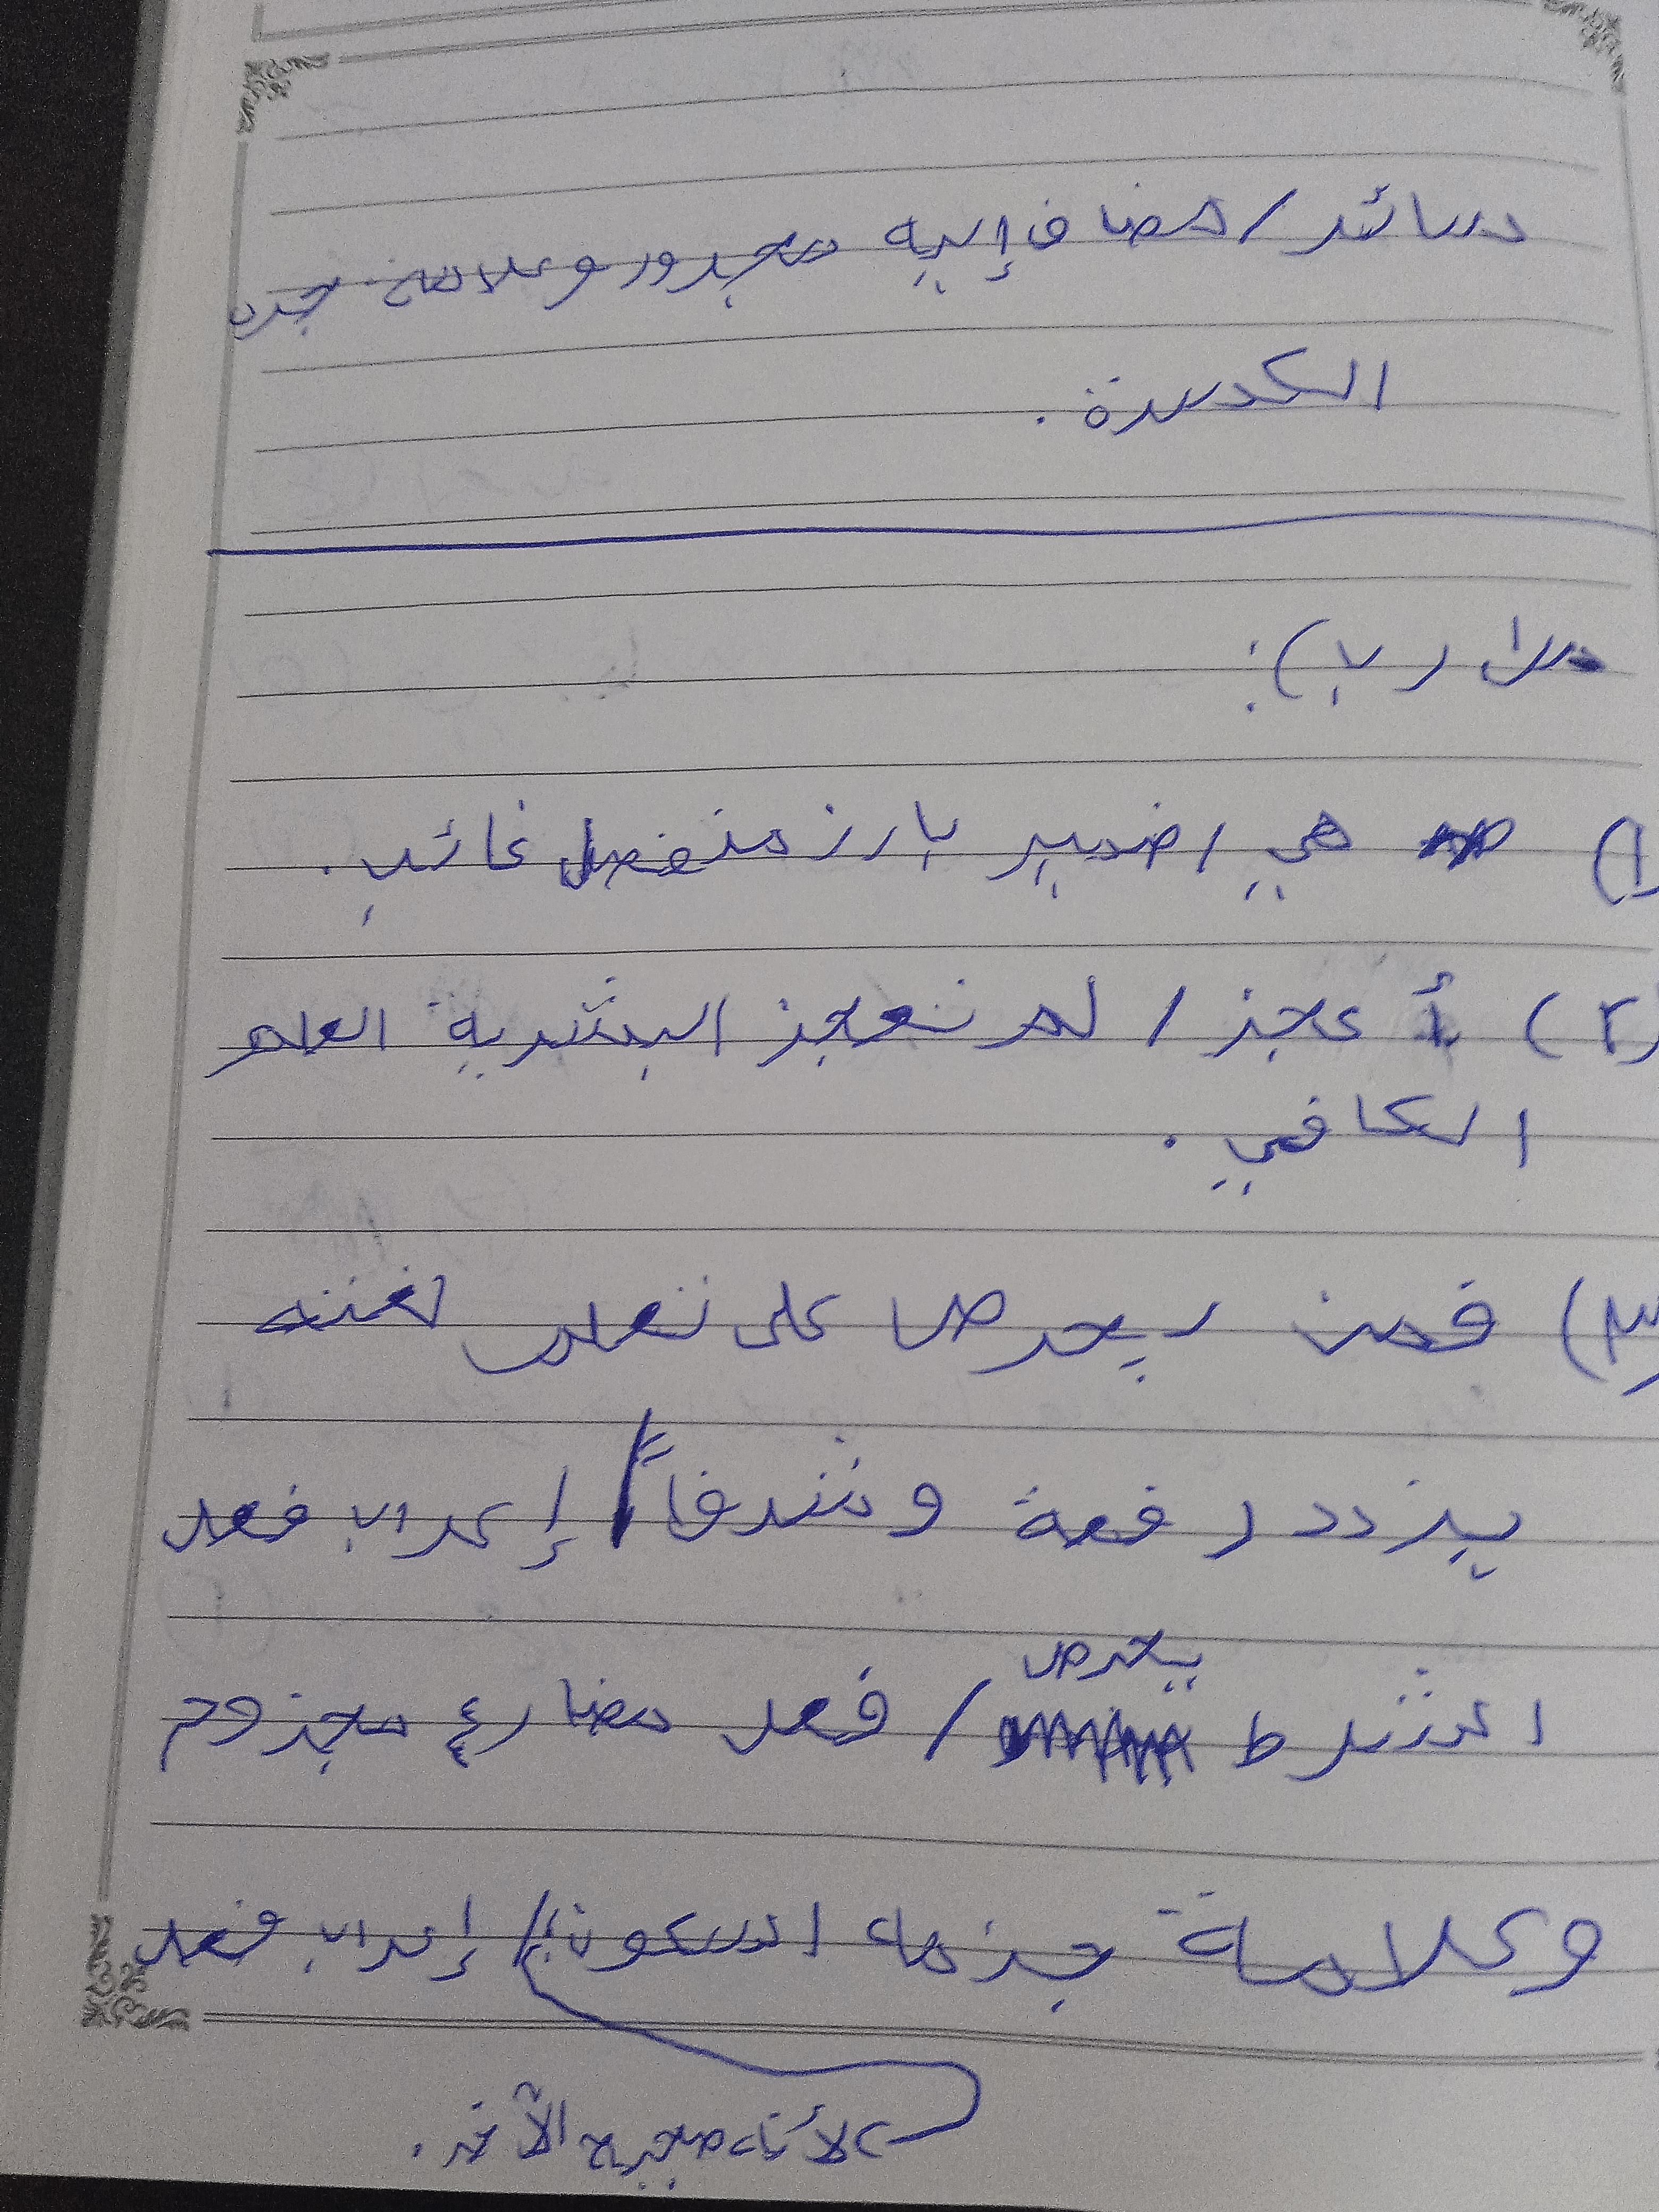 سائر / مضاف إليه مجرور وعلامة جره
الكسرة .
س (ب) :
(١ هي / ضمير بارز منفصل غائب .
(٢) أعجز / لم تعجز البشرية العلم
الكافي .
(٣) فمن يحرص على تعلم لغته
يزدد رفعة وشرفاً / إعراب فعل
الشرط يحرص / فعل مضارع مجزوم
وعلامة جزمه السكون / إعراب فعل
لأنه صحيح الآخر .